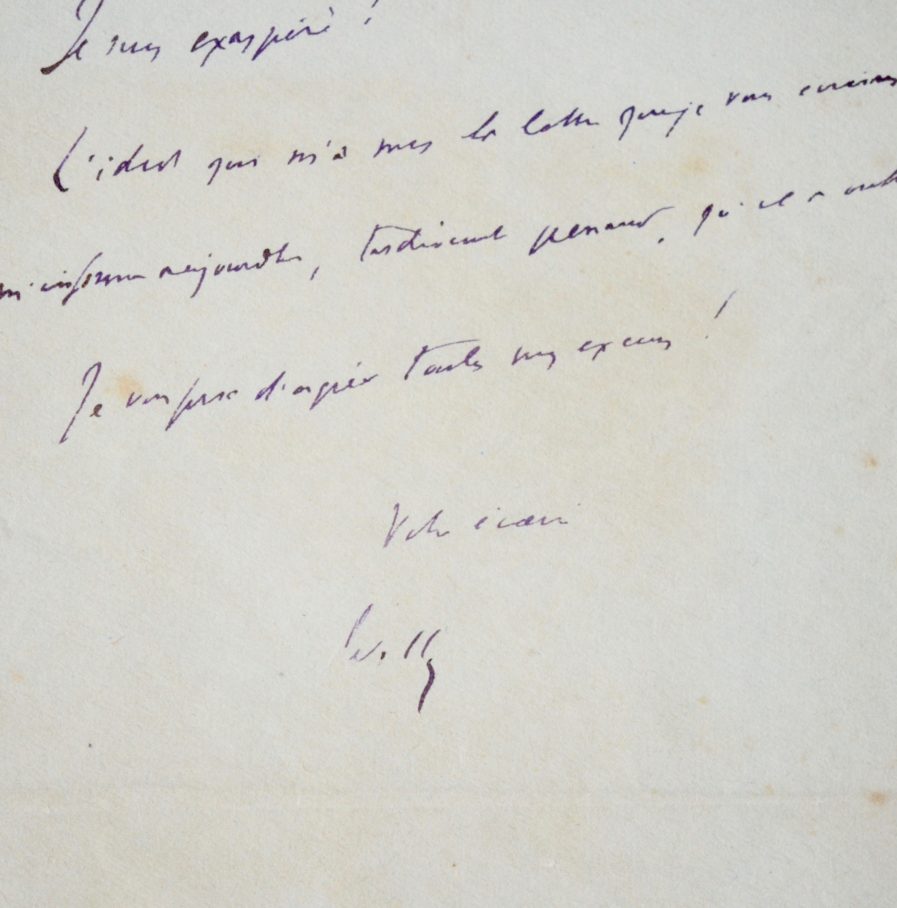 Je suis exaspéré !
L'idiot qui m'a mis la lettre que je vous
m'informe aujourd'hui, tardivement penaud, qu'il a
Je vous prie d'agréer toutes mes excuses !
Votre
Willy